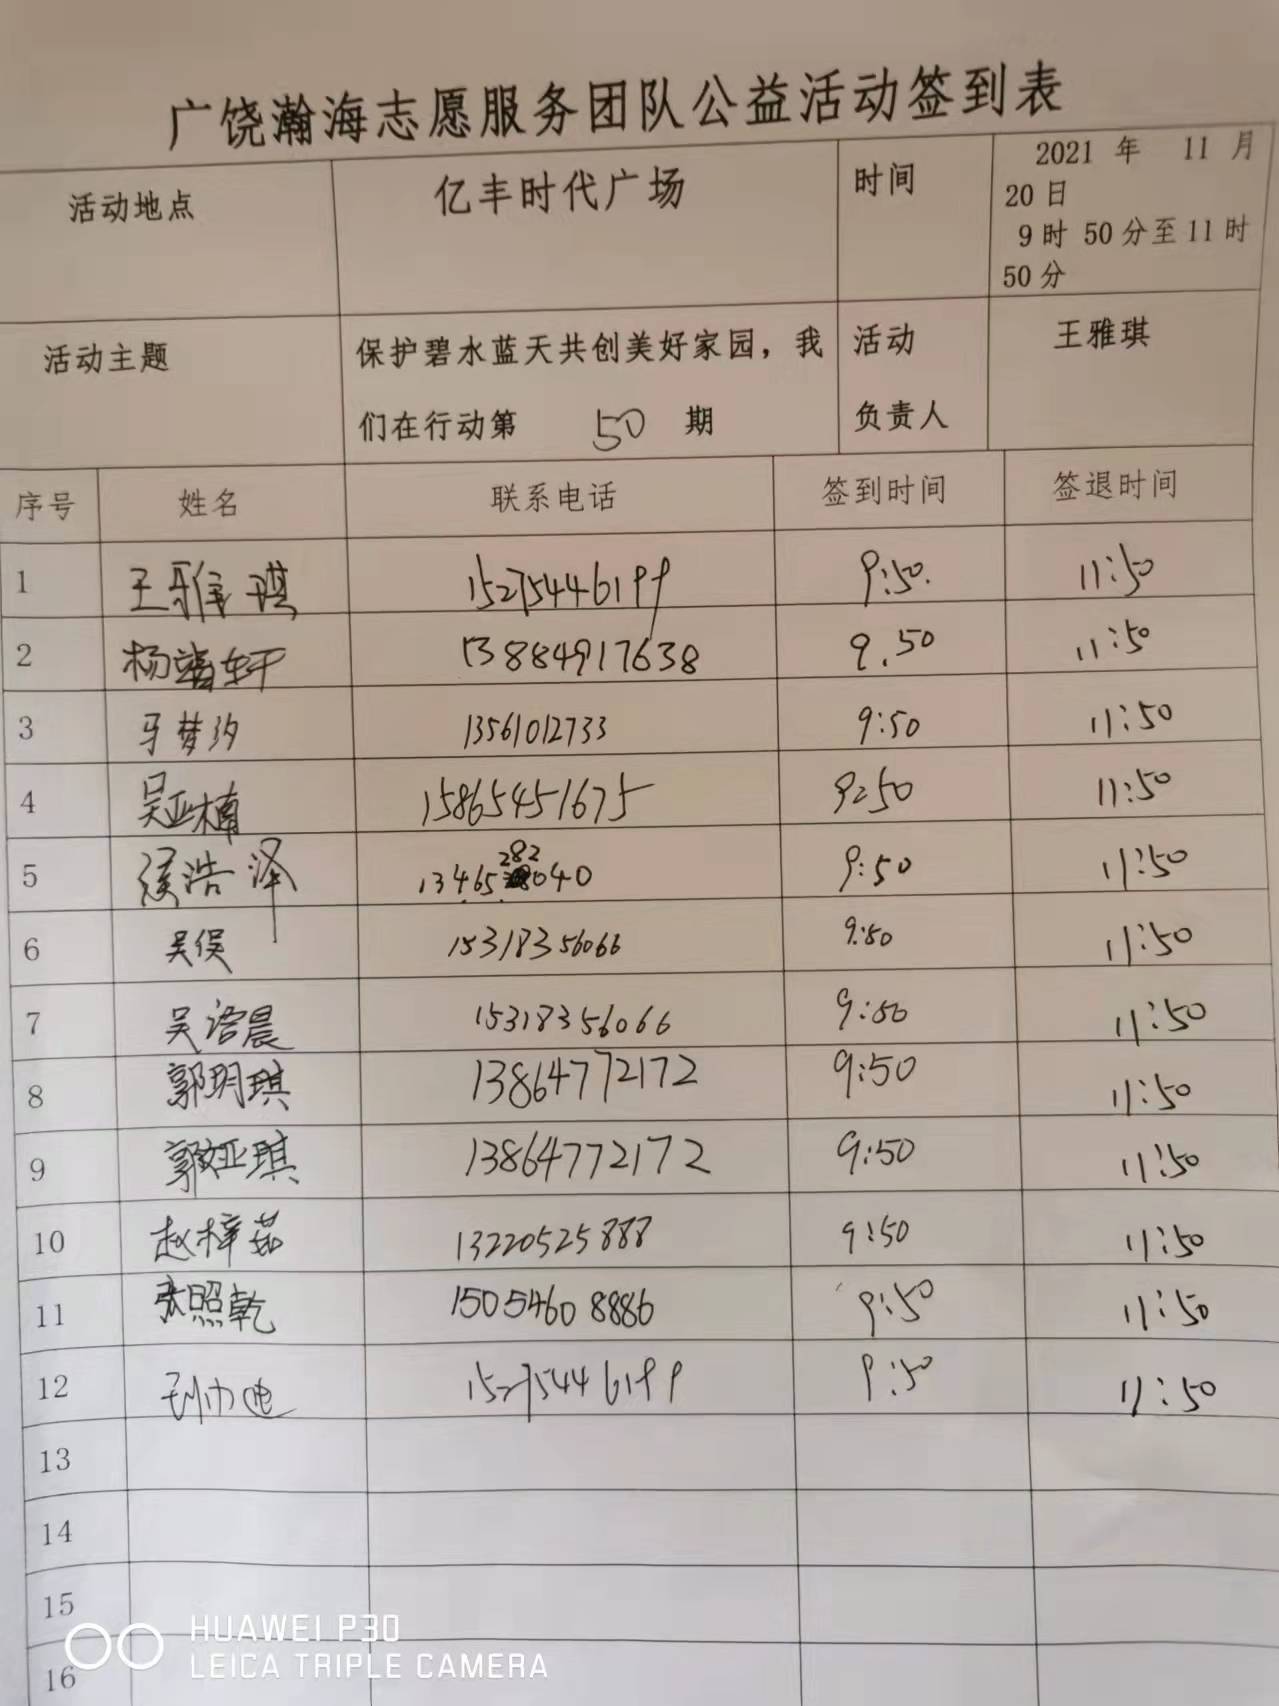 广饶瀚海志愿服务团队公益活动签到表
活动地点 亿丰时代广场 时间 2021 年 11 月
20日
9时 50分至11时
50分
活动主题 保护碧水蓝天共创美好家园，我 活动 王雅琪
们在行动第 50 期 负责人
序号 姓名 联系电话 签到时间 签退时间
1 王雅琪 15275446199 9:50. 11:50
2 杨 轩 13884917638 9.50 11:50
3 马梦汐 13561012733 9:50 11:50
4 吴亚楠 15865451675 9:50 11:50
5 侯浩泽 13465282040 9:50 11:50
6 吴俣 15318356066 9:50 11:50
7 吴 晨 15318356066 9:50 11:50
8 郭玥琪 13864772172 9:50 11:50
9 郭娅琪 13864772172 9:50 11:50
10 赵梓茹 13220525888 9:50 11:50
11 张照乾 15054608886 9:50 11:50
12 15275446199 9:50 11:50
13
14
15
16
HUAWEI P30
LEICA TRIPLE CAMERA